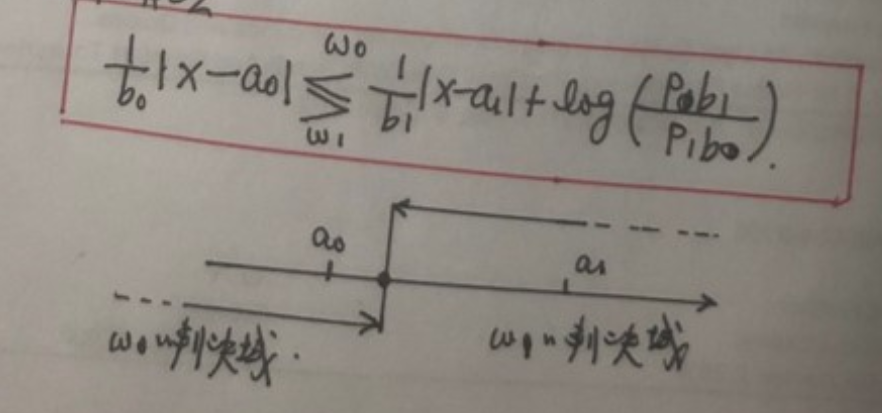 1/b₀ |x-a₀| ≶ (ω₀ / ω₁) 1/b₁ |x-a₁| + log(P₀b₁ / P₁b₀).
a₀ a₁
ω₀ 判决域. ω₁ 判决域